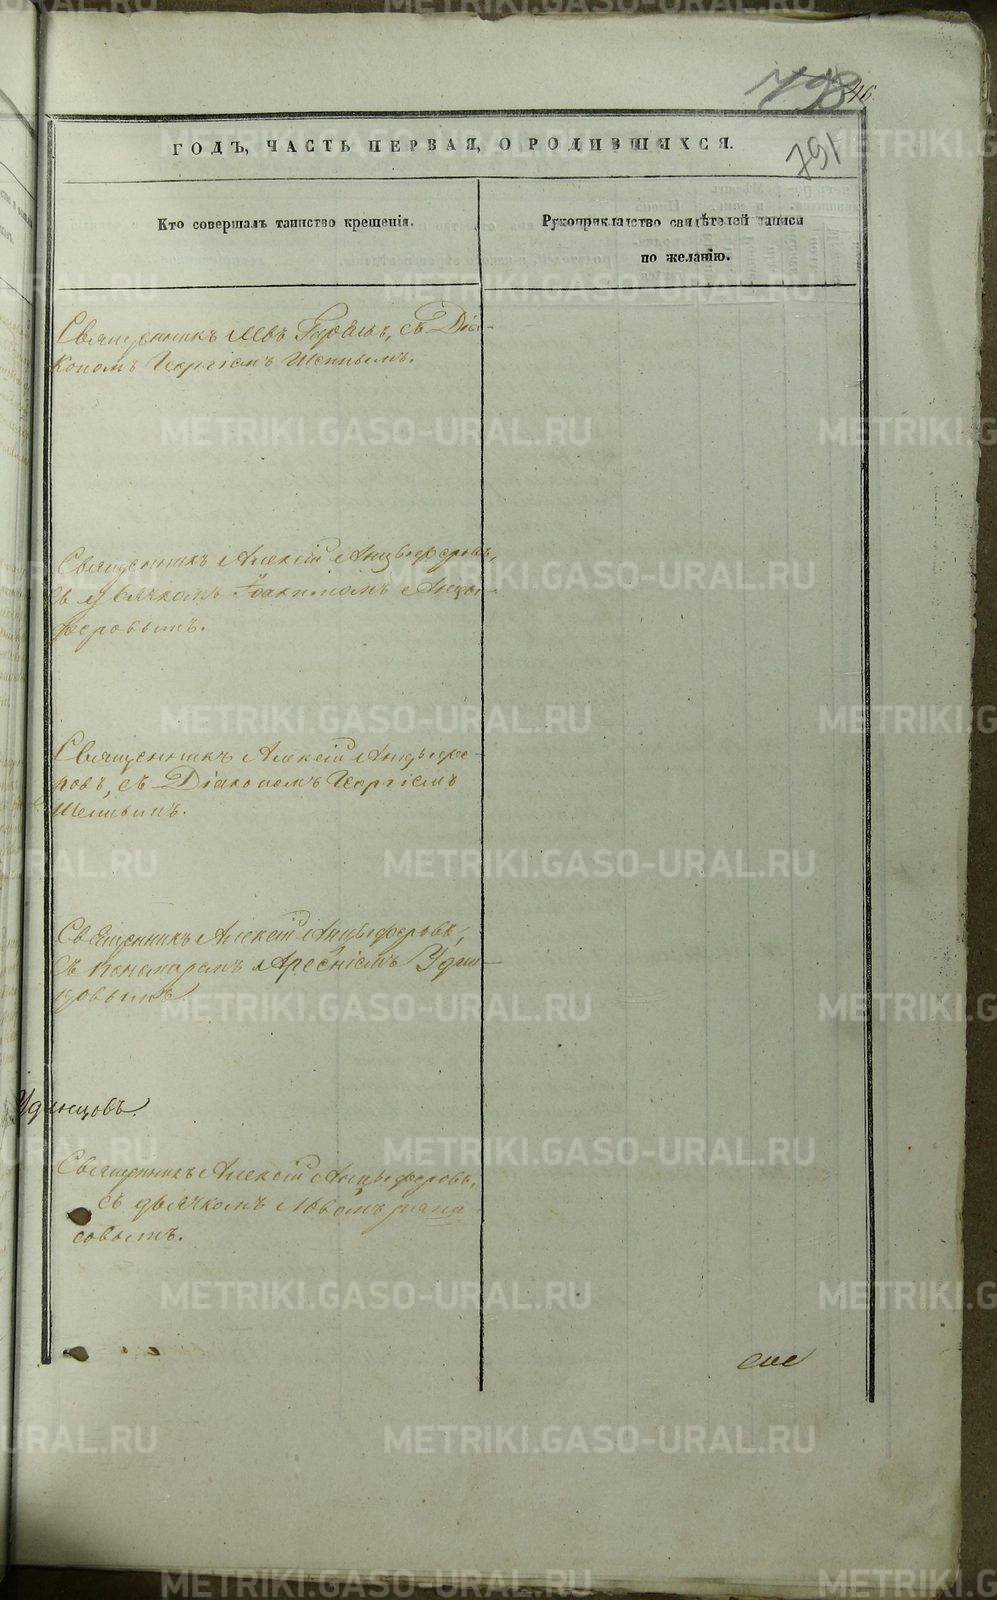 798 46
791
ГОДЪ, ЧАСТЬ ПЕРВАЯ, О РОДИВШИХСЯ.
Кто совершалъ таинство крещенія.
Рукоприкладство свидѣтелей записи
по желанію.
Священникъ Левъ съ Діа-
кономъ Георгіемъ
Священникъ Алексій Анцыферовъ,
съ дьячкомъ Іоакимомъ Анцы-
феровымъ.
Священникъ Алексій Анцыфе-
ровъ, съ Діакономъ Георгіемъ
Священникъ Алексій Анцыферовъ,
съ пономаремъ Арсеніемъ Удин-
цовымъ.
Удинцовъ.
Священникъ Алексій Анцыферовъ,
съ дьячкомъ
совымъ.
METRIKI.GASO-URAL.RU